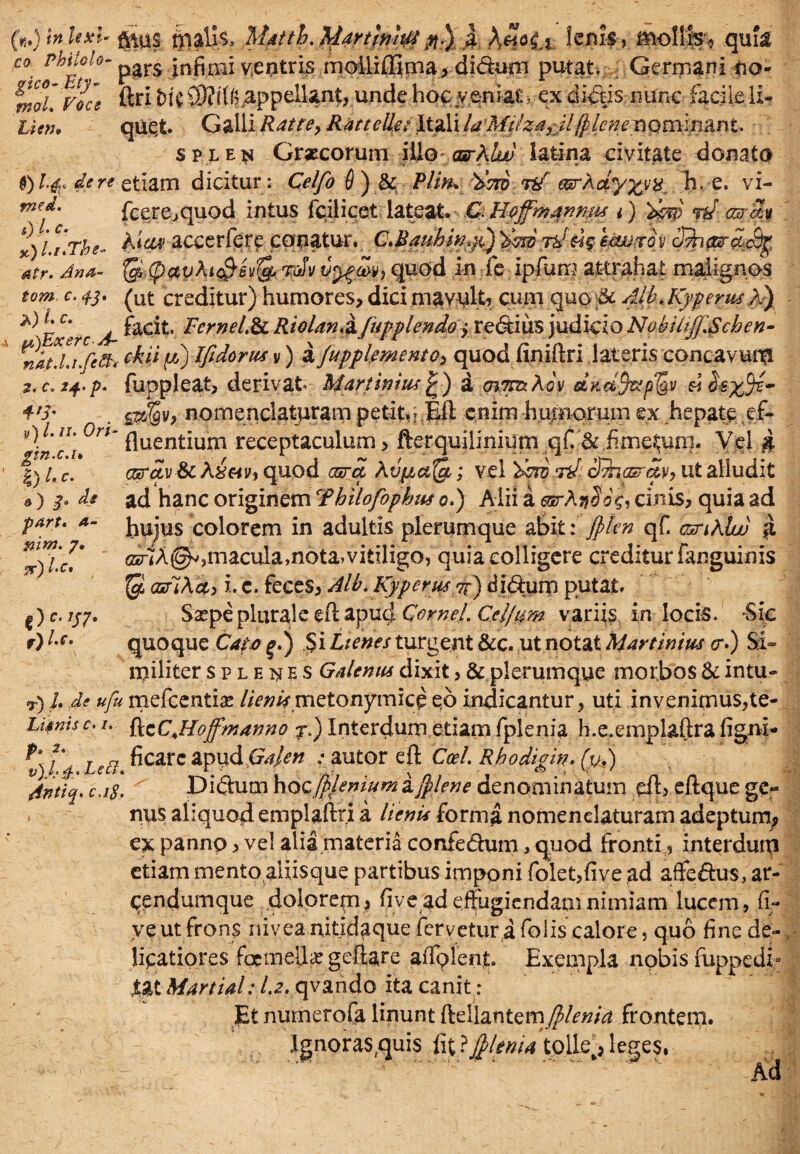 (n.) in lexi- ſinus malis, Matth. Martinius n.) à λαός,ι lenis, mollis, quia
co Philolo- pars infimi ventris molliſſima, dictum putat. Germani no-
gico- Ety-
mol. Voce ſtri die Miltz appellant, unde hoc veniat, ex dictis nunc facile li-
Lien. quet. Galli Ratte, Rattelle; Itali la Milza, il ſplene nominant.
SPLEN Græcorum illo σπλὼ latina civitate donato
θ) l.4. de re etiam dicitur: Celſo θ) & Plin. ἀπὸ τῦ σπλάγχνυ h. e. vi-
med. ſcere, quod intus ſcilicet lateat. C. Hoffmannus ι) ἀπὸ τῦ σπᾶν
ι) l. c.
κ) l.1. The- λίαν accerſere conatur. C. Bauhin. κ) ἀπὸ τῦ εἰς ἑαυτὸν
atr. Ana- quod in ſe ipſum attrahat malignos
tom. c. 43. (ut creditur) humores, dici mavult, cum quo & Alb. Kyperus λ)
λ) l. c. facit. Fernel. & Riolan. à ſupplendo; rectius judicio Nobiliſſ. Schen-
μ) Exerc. A-
nat. l.1. ſect. ckii μ) Iſidorus ν) à ſupplemento, quod ſiniſtri lateris concavum
2. c. 24. p. ſuppleat, derivat. Martinius ξ) à
413. nomenclaturam petit. Eſt enim humorum ex hepate ef-
ν) l. 11. Ori- fluentium receptaculum, ſterquilinium qſ. & fimetum. Vel à
gin. c. 1.
ξ) l. c. σπᾶν & λύειν, quod σπᾷ λύματα; vel ἀπὸ τῦ ἐπισπᾶν, ut alludit
ο) 3. de ad hanc originem Philoſophus ο.) Alii à σπληδὸς, cinis, quia ad
part. a- hujus colorem in adultis plerumque abit: ſplen qſ. σπιλὼ à
nim. 7.
π) l.c. σπῖλος, macula, nota, vitiligo, quia colligere creditur ſanguinis
σπῖλα, i. e. feces, Alb. Kyperus π) dictum putat.
ρ) c. 157. Sæpe plurale eſt apud Cornel. Celſum variis in locis. Sic
σ) l.c. quoque Cato ρ.) Si Lienes turgent &c. ut notat Martinius σ.) Si-
militer SPLENES Galenus dixit, & plerumque morbos & intu-
τ) l. de uſu meſcentiæ lienis metonymice eo indicantur, uti invenimus, te-
Lienis c. 1. ſte C. Hoffmanno τ.) Interdum etiam ſplenia h.e. emplaſtra ſigni-
p. 2.
υ) l. 4. Lect. ficare apud Galen: autor eſt Cœl. Rhodigin. (υ.)
Antiq. c. 18. Dictum hoc ſplenium à ſplene denominatum eſt, eſtque ge-
nus aliquod emplaſtri à lienis forma nomenclaturam adeptum,
ex panno, vel alia materia confectum, quod fronti, interdum
etiam mento aliisque partibus imponi ſolet, ſive ad affectus, ar-
cendumque dolorem, ſive ad effugiendam nimiam lucem, ſi-
ve ut frons nivea nitidaque ſervetur à ſolis calore, quo ſine de-
licatiores fœmellæ geſtare aſſolent. Exempla nobis ſuppedi-
tat Martial: l.2. qvando ita canit:
Et numeroſa linunt ſtellantem ſplenia frontem.
Ignoras, quis ſit? ſplenia tolle, leges.
Ad